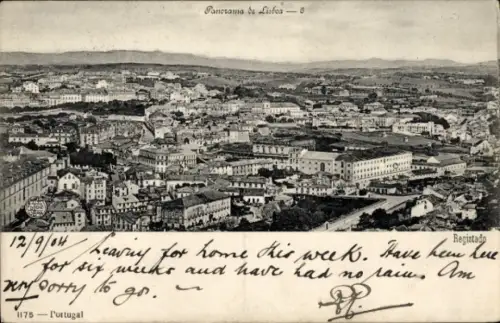 Panorama de Lisboa — 6
12/9/04 Leaving for home this week. Have been here
Registado
for six weeks and have had no rain. Am
very sorry to go.
1175 — Portugal